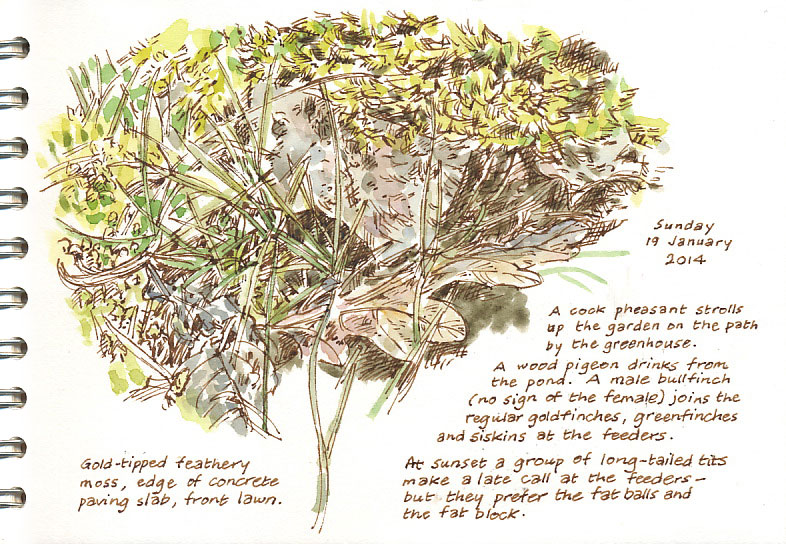 Sunday
19 January
2014
A cock pheasant strolls
up the garden on the path
by the greenhouse.
A wood pigeon drinks from
the pond. A male bullfinch
(no sign of the female) joins the
regular goldfinches, greenfinches
and siskins at the feeders.
Gold-tipped feathery
moss, edge of concrete
paving slab, front lawn.
At sunset a group of long-tailed tits
make a late call at the feeders –
but they prefer the fat balls and
the fat block.